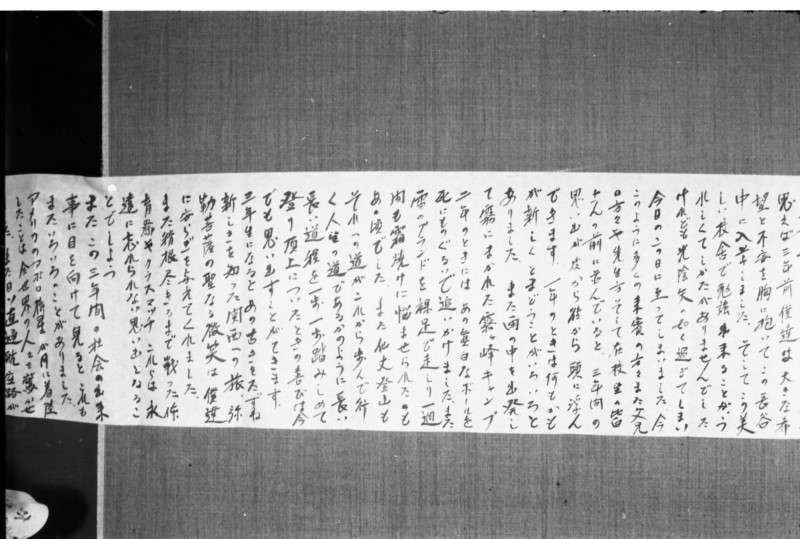 思えば三年前僕達は大きな希
望と不安を胸に抱いてこの長谷
中に入学しました。そしてこの美
しい校舎で勉強出来ることがう
れしくてしかたがありませんでした
けれども光陰矢の如く過ぎてしまい
今日のこの日に至ってしまいました 今
このように多くの来賓の方々また父兄
の方々や先生方そして在校生の皆
さんの前に並んでいると、三年間の
思い出が次から次から頭に浮ん
できます。一年のときは何もかも
が新しくとまどうことがいろいろと
ありました。また雨の中を出発し
て霧にまかれた霧ヶ峰キャンプ
二年のときにはあの真白なボールを
死にもぐるいで追いかけました。また
雪のグランドを裸足で走しり週
間も霜焼けに悩ませられたのも
あの頃でした。また仙丈登山も
それへの道がこれから歩んで行
く人生の道であるかのように長い
長い道程を一歩一歩踏みしめて
登り頂上についたときの喜びは今
でも思い出すことができます。
三年生になるとあの古きをたずね
新しきを知った関西への旅 弥
勒菩薩の聖なる微笑は僕達
に安らぎを与えてくれました。
また精根尽きるまで戦った体
育祭やクラスマッチ これらは永
遠に忘れられない思い出となるこ
とでしょう
また この三年間の社会の出来
事に目を向けて見ると これも
またいろいろのことがありました。
アメリカのアポロ衛星が月に着陸
したことは全世界の人々を驚かせ